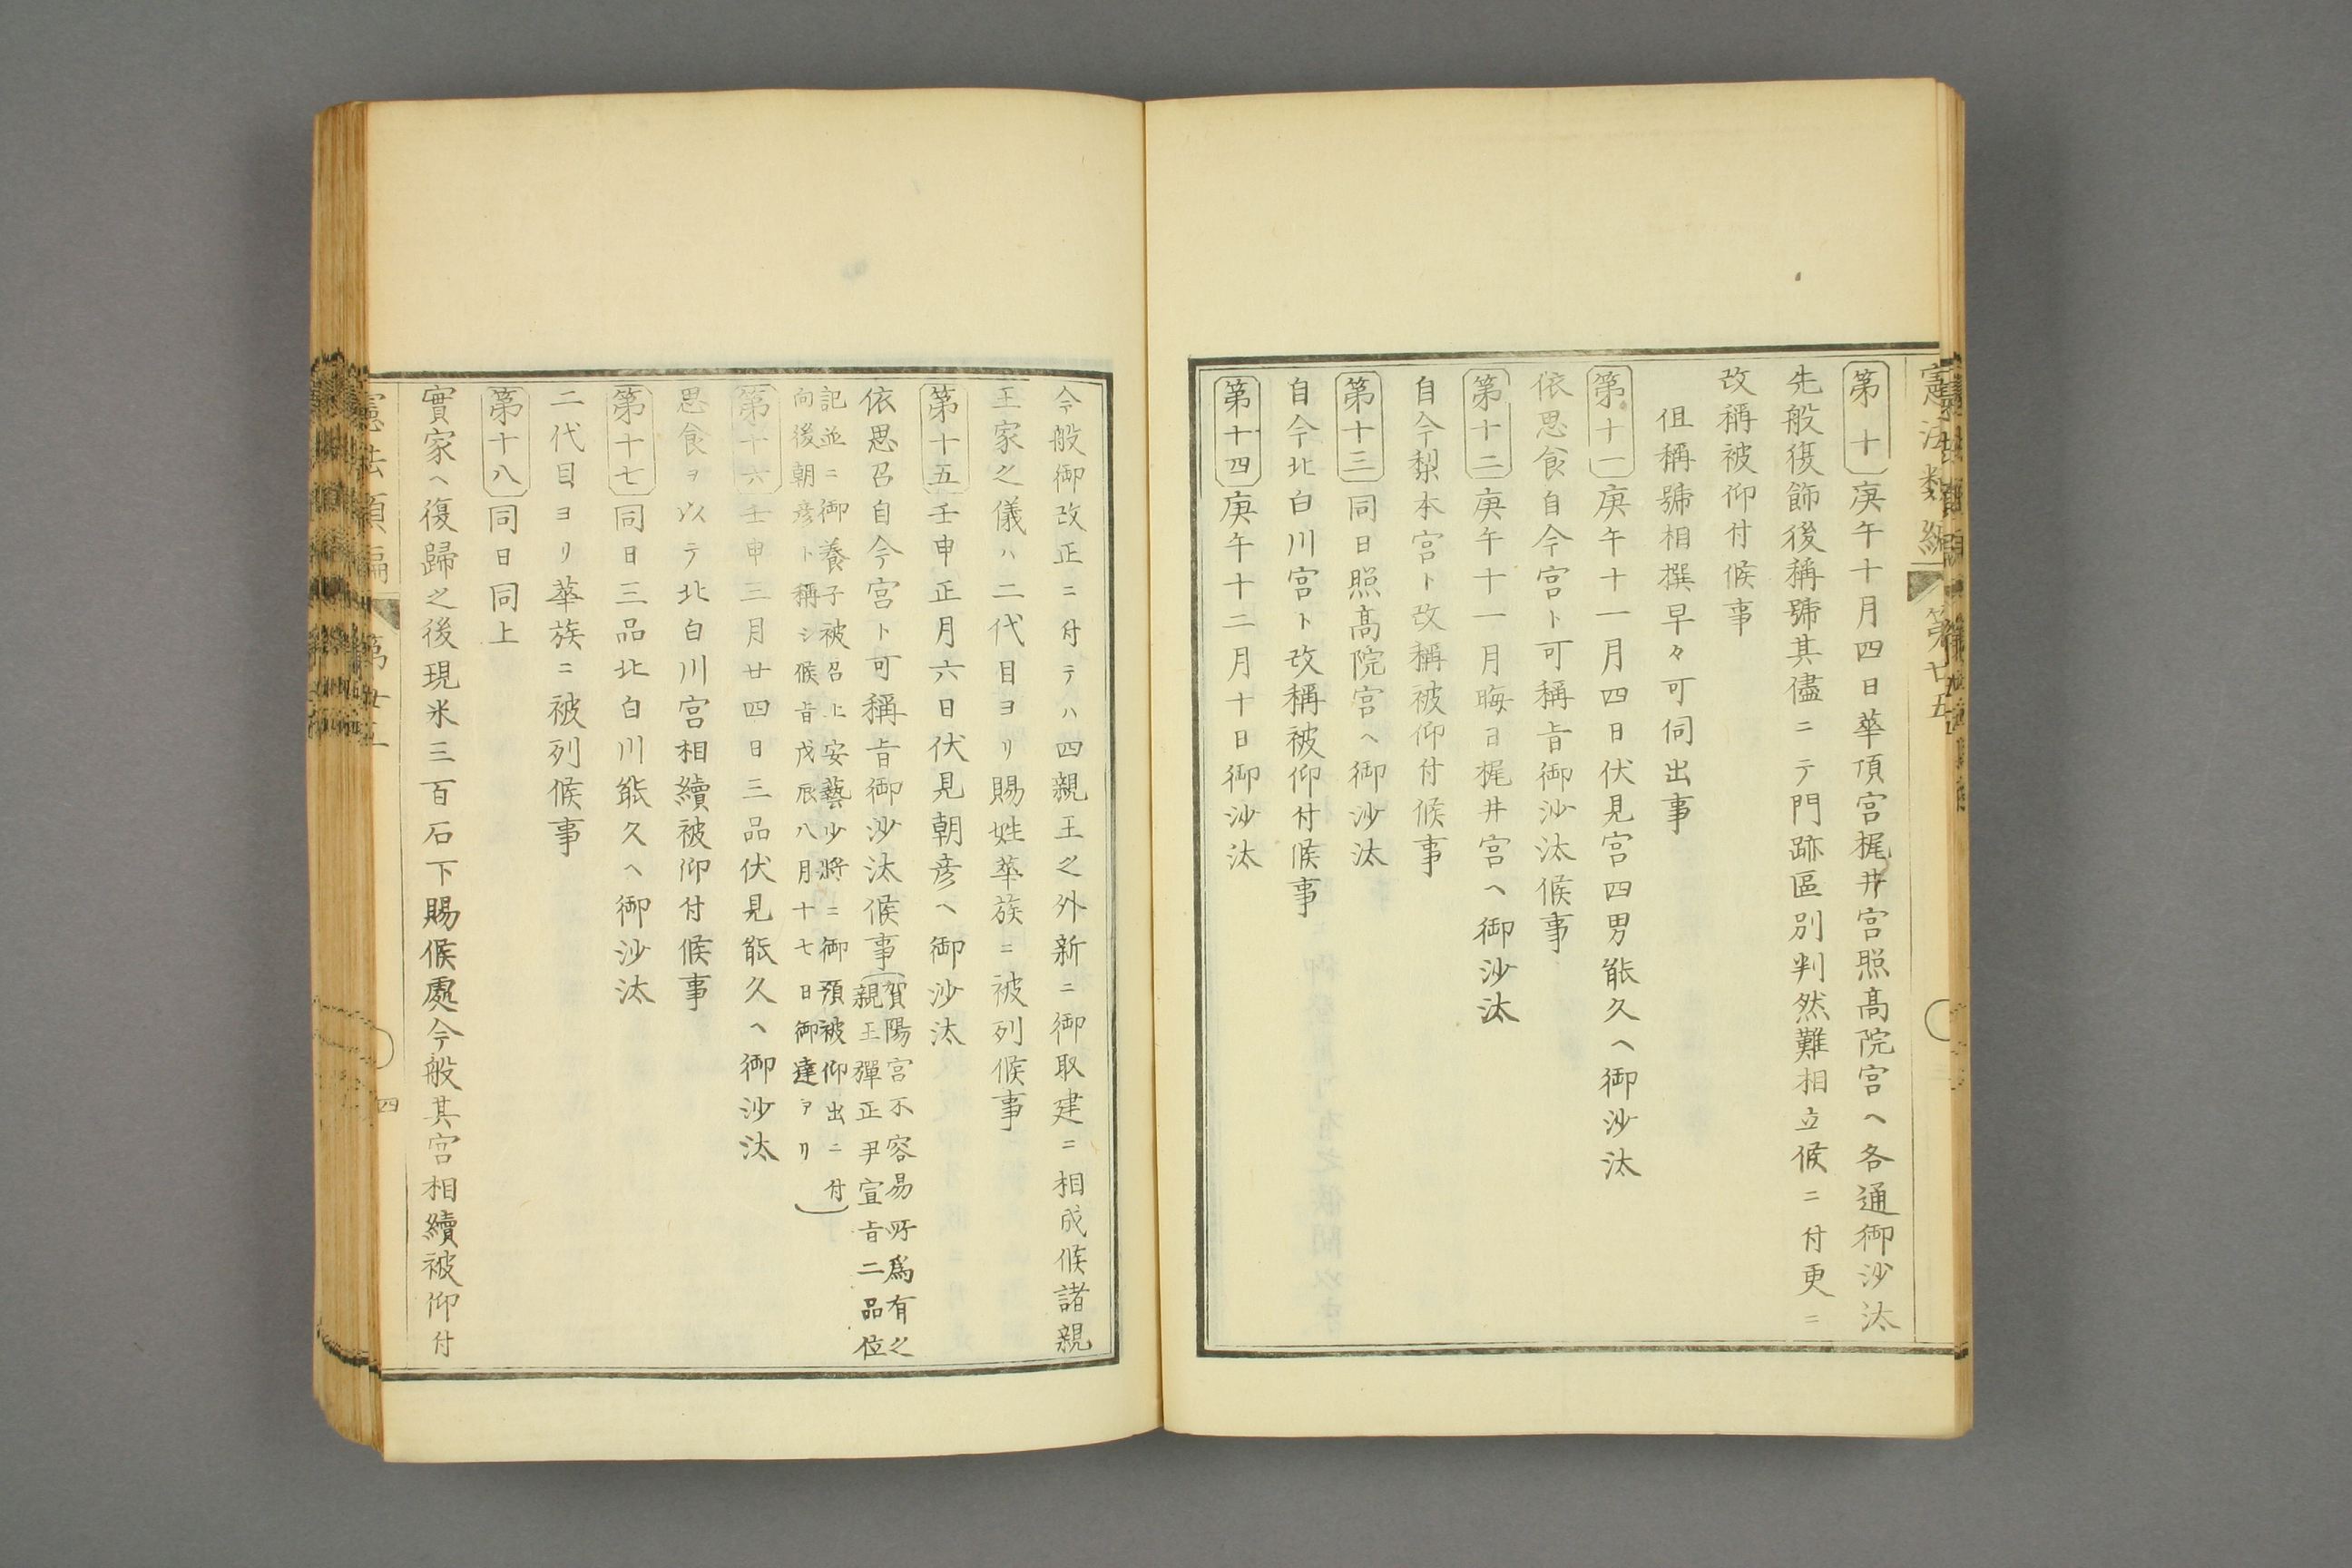 憲法類編 第廿五
第十 庚午十月四日華頂宮梶井宮照高院宮ヘ各通御沙汰
先般復飾後稱號其儘ニテ門跡區別判然難相立候ニ付更ニ
改稱被仰付候事
但稱號相撰早々可伺出事
第十一 庚午十一月四日伏見宮四男能久ヘ御沙汰
依思食自今宮ト可稱旨御沙汰候事
第十二 庚午十一月晦日梶井宮ヘ御沙汰
自今梨本宮ト改稱被仰付候事
第十三 同日照髙院宮ヘ御沙汰
自今北白川宮ト改稱被仰付候事
第十四 庚午十二月十日御沙汰
今般御改正ニ付テハ四親王之外新ニ御取建ニ相成候諸親
王家之儀ハ二代目ヨリ賜姓華族ニ被列候事
第十五 壬申正月六日伏見朝彦ヘ御沙汰
依思召自今宮ト可稱旨御沙汰候事(賀陽宮不容易所爲有之
親王彈正尹宣旨二品位
記並ニ御養子被召上安藝少將ニ御預被仰出ニ付
向後朝彦ト稱シ候旨戊辰八月十七日御達アリ)
第十六 壬申三月廿四日三品伏見能久ヘ御沙汰
思食ヲ以テ北白川宮相續被仰付候事
第十七 同日三品北白川能久ヘ御沙汰
二代目ヨリ華族ニ被列候事
第十八 同日同上
實家ヘ復歸之後現米三百石下賜候處今般其宮相續被仰付
憲法類編 第廿五
四